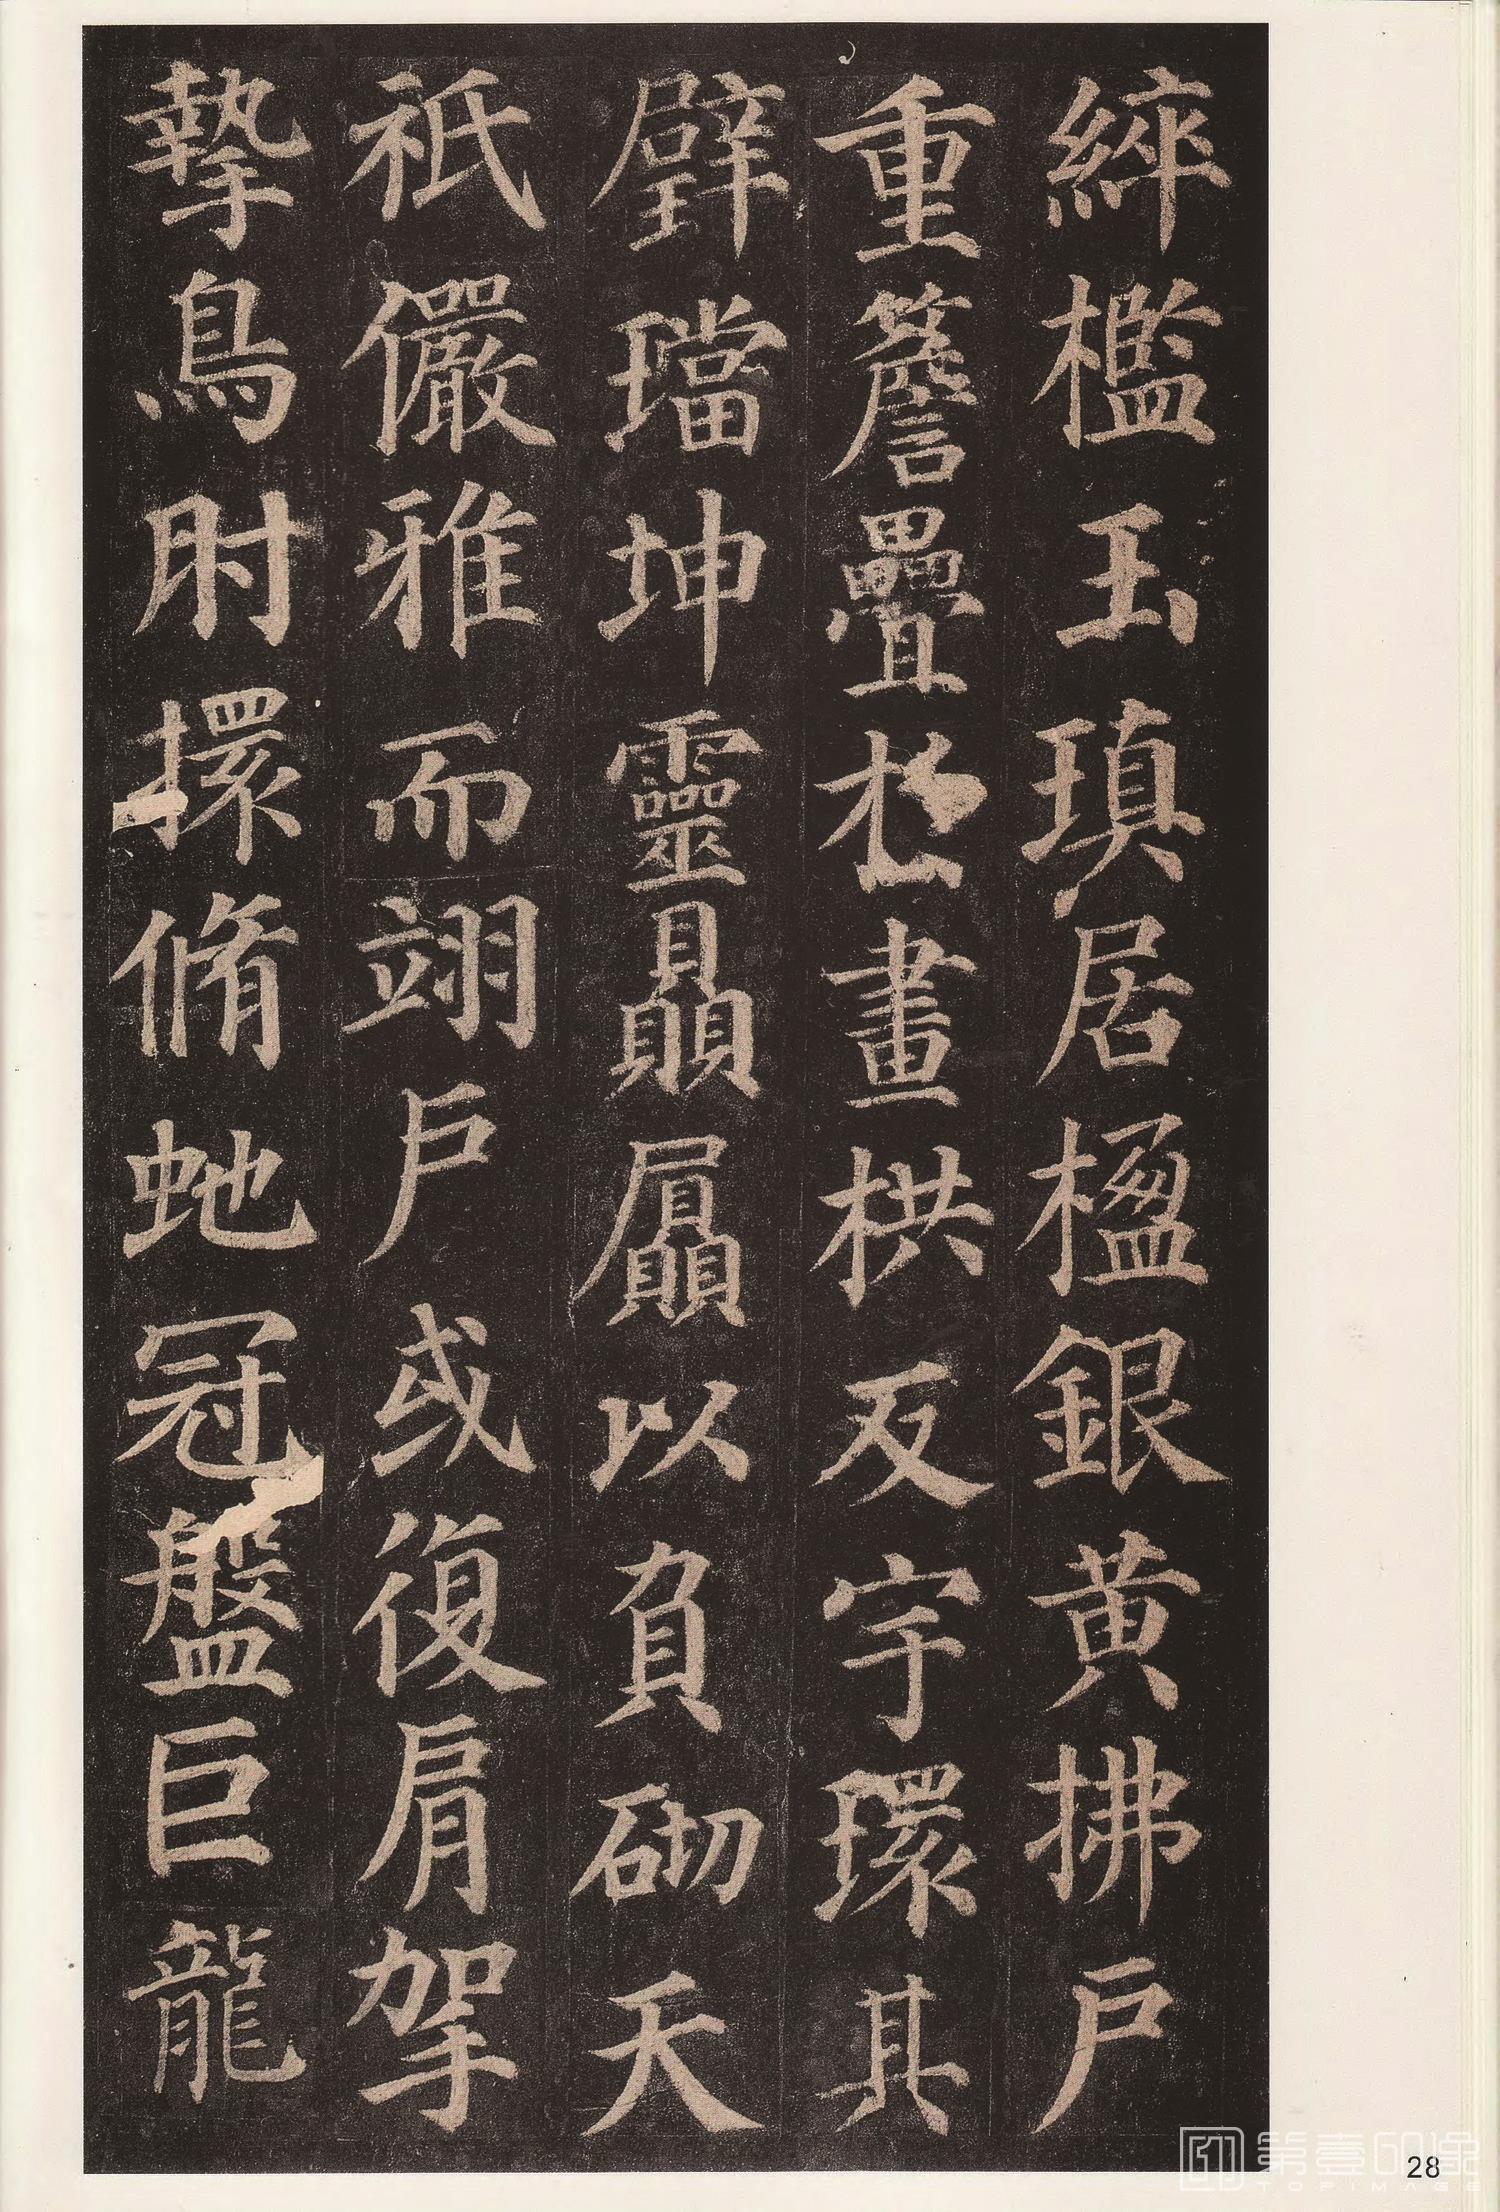 綷檻玉瑱居楹銀黃拂戶
重簷疊扵畫栱反宇環其
璧璫坤靈贔屭以負砌天
祇儼雅而翊戶或復肩挐
摯鳥肘擐脩虵冠盤巨龍
28
第壹印像
TOPIMAGE